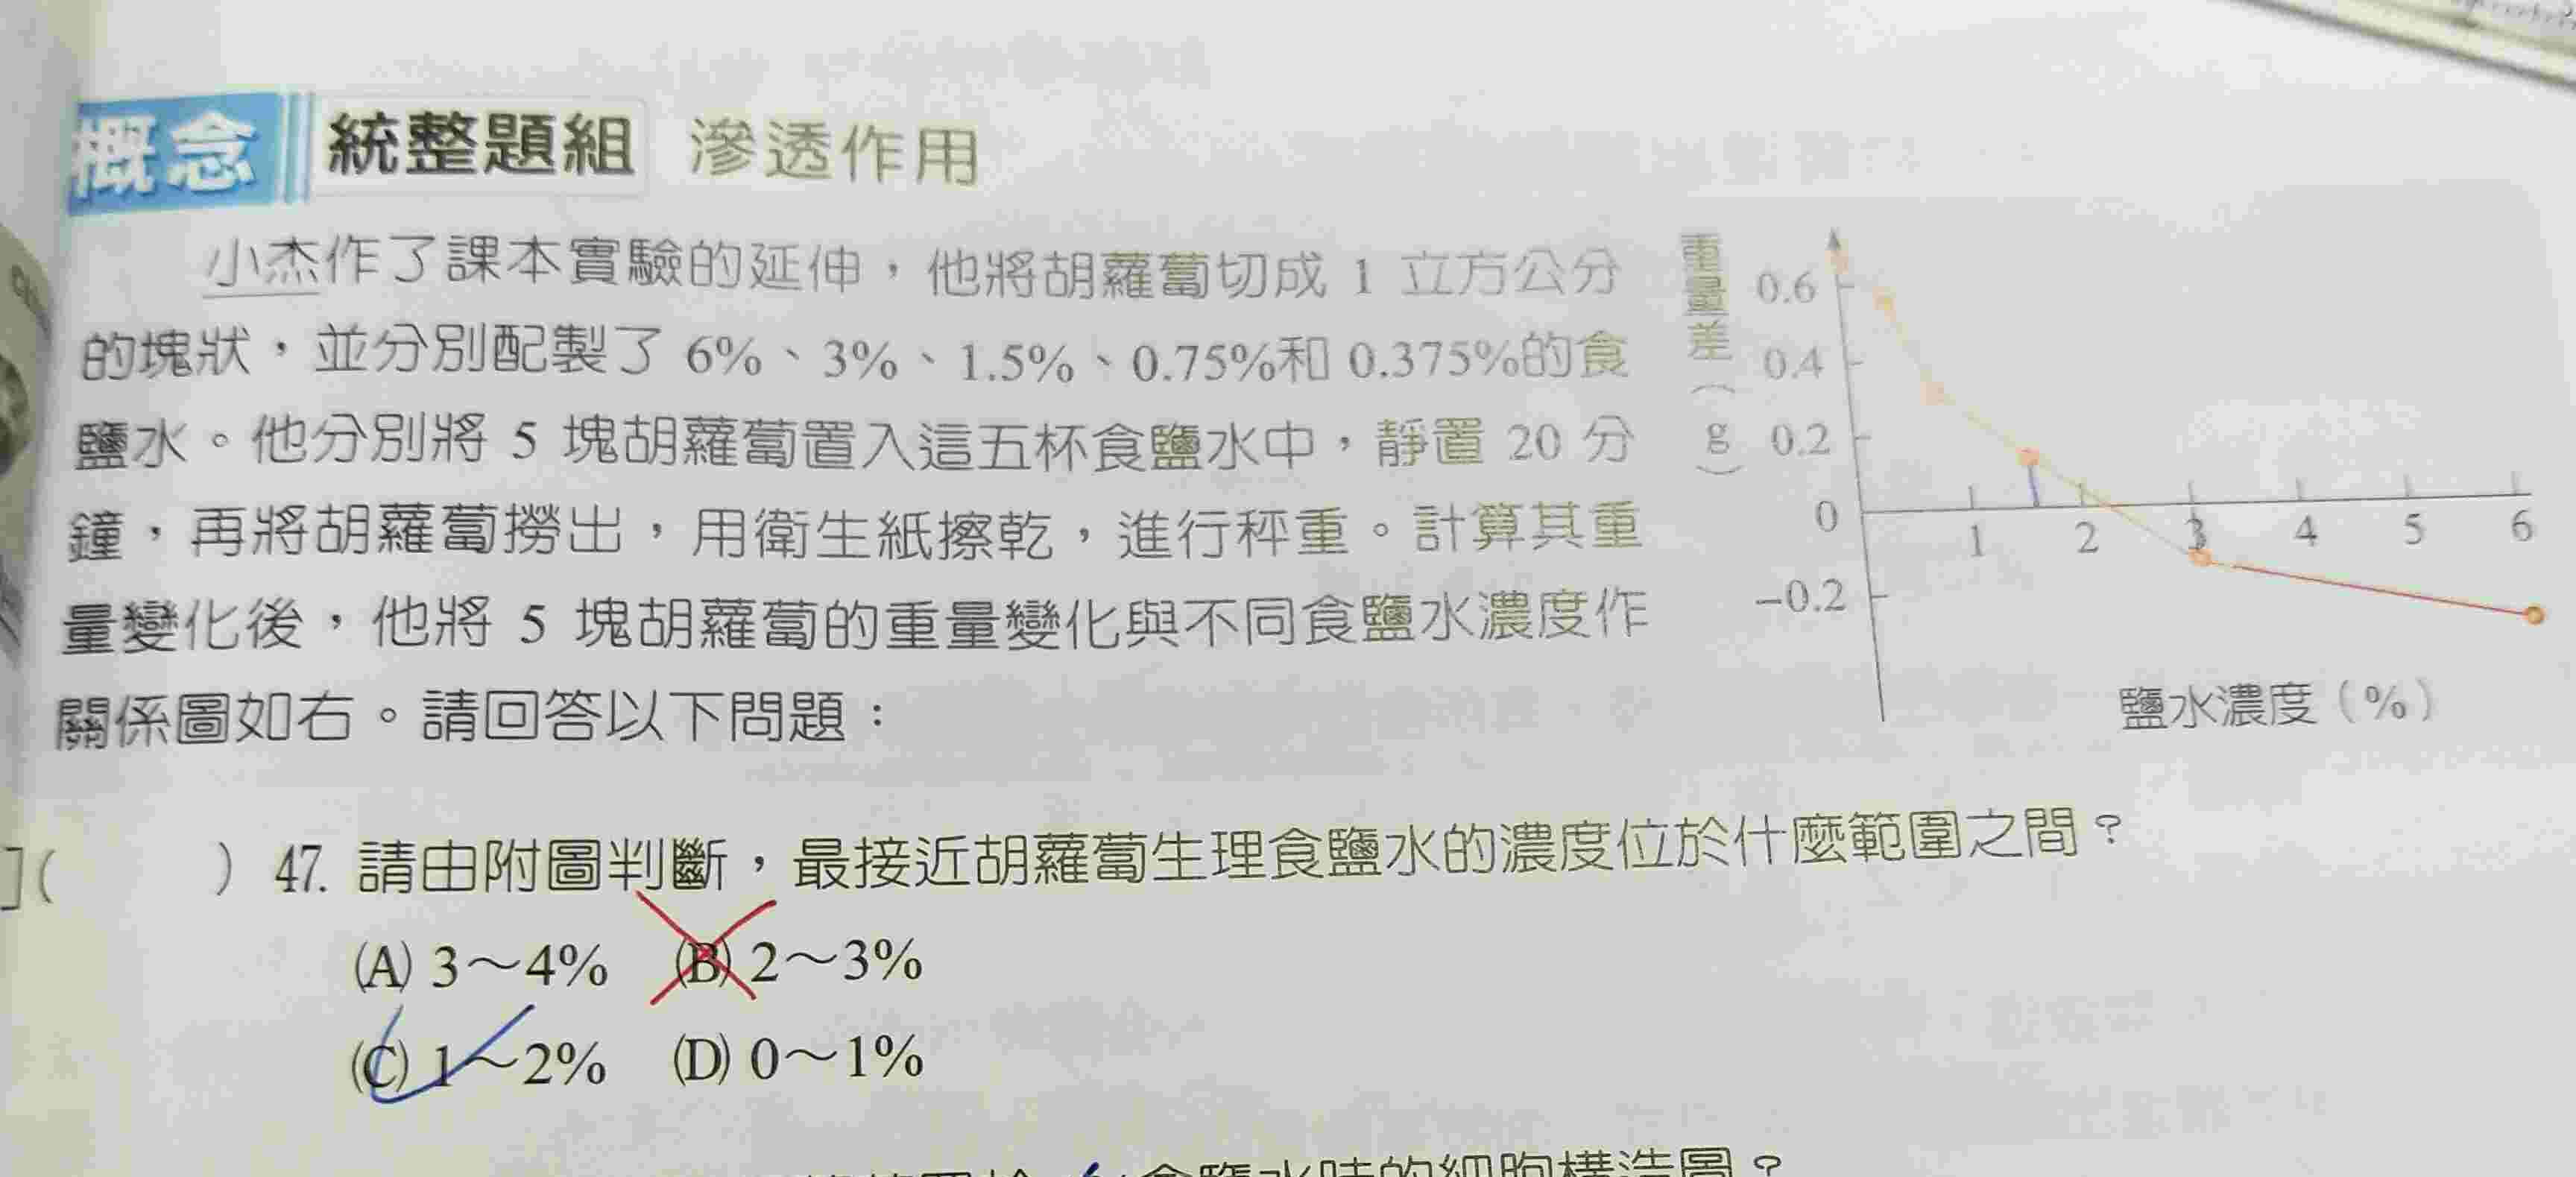 概念 統整題組 滲透作用
小杰作了課本實驗的延伸,他將胡蘿蔔切成 1 立方公分
的塊狀,並分別配製了 6%、3%、1.5%、0.75%和 0.375%的食
鹽水。他分別將 5 塊胡蘿蔔置入這五杯食鹽水中,靜置 20 分
鐘,再將胡蘿蔔撈出,用衛生紙擦乾,進行秤重。計算其重
量變化後,他將 5 塊胡蘿蔔的重量變化與不同食鹽水濃度作
關係圖如右。請回答以下問題:
重量差(g)
0.6
0.4
0.2
0
-0.2
1 2 3 4 5 6
鹽水濃度(%)
]( ) 47. 請由附圖判斷,最接近胡蘿蔔生理食鹽水的濃度位於什麼範圍之間?
(A) 3~4% (B) 2~3%
(C) 1~2% (D) 0~1%
食鹽水時的細胞構造圖?